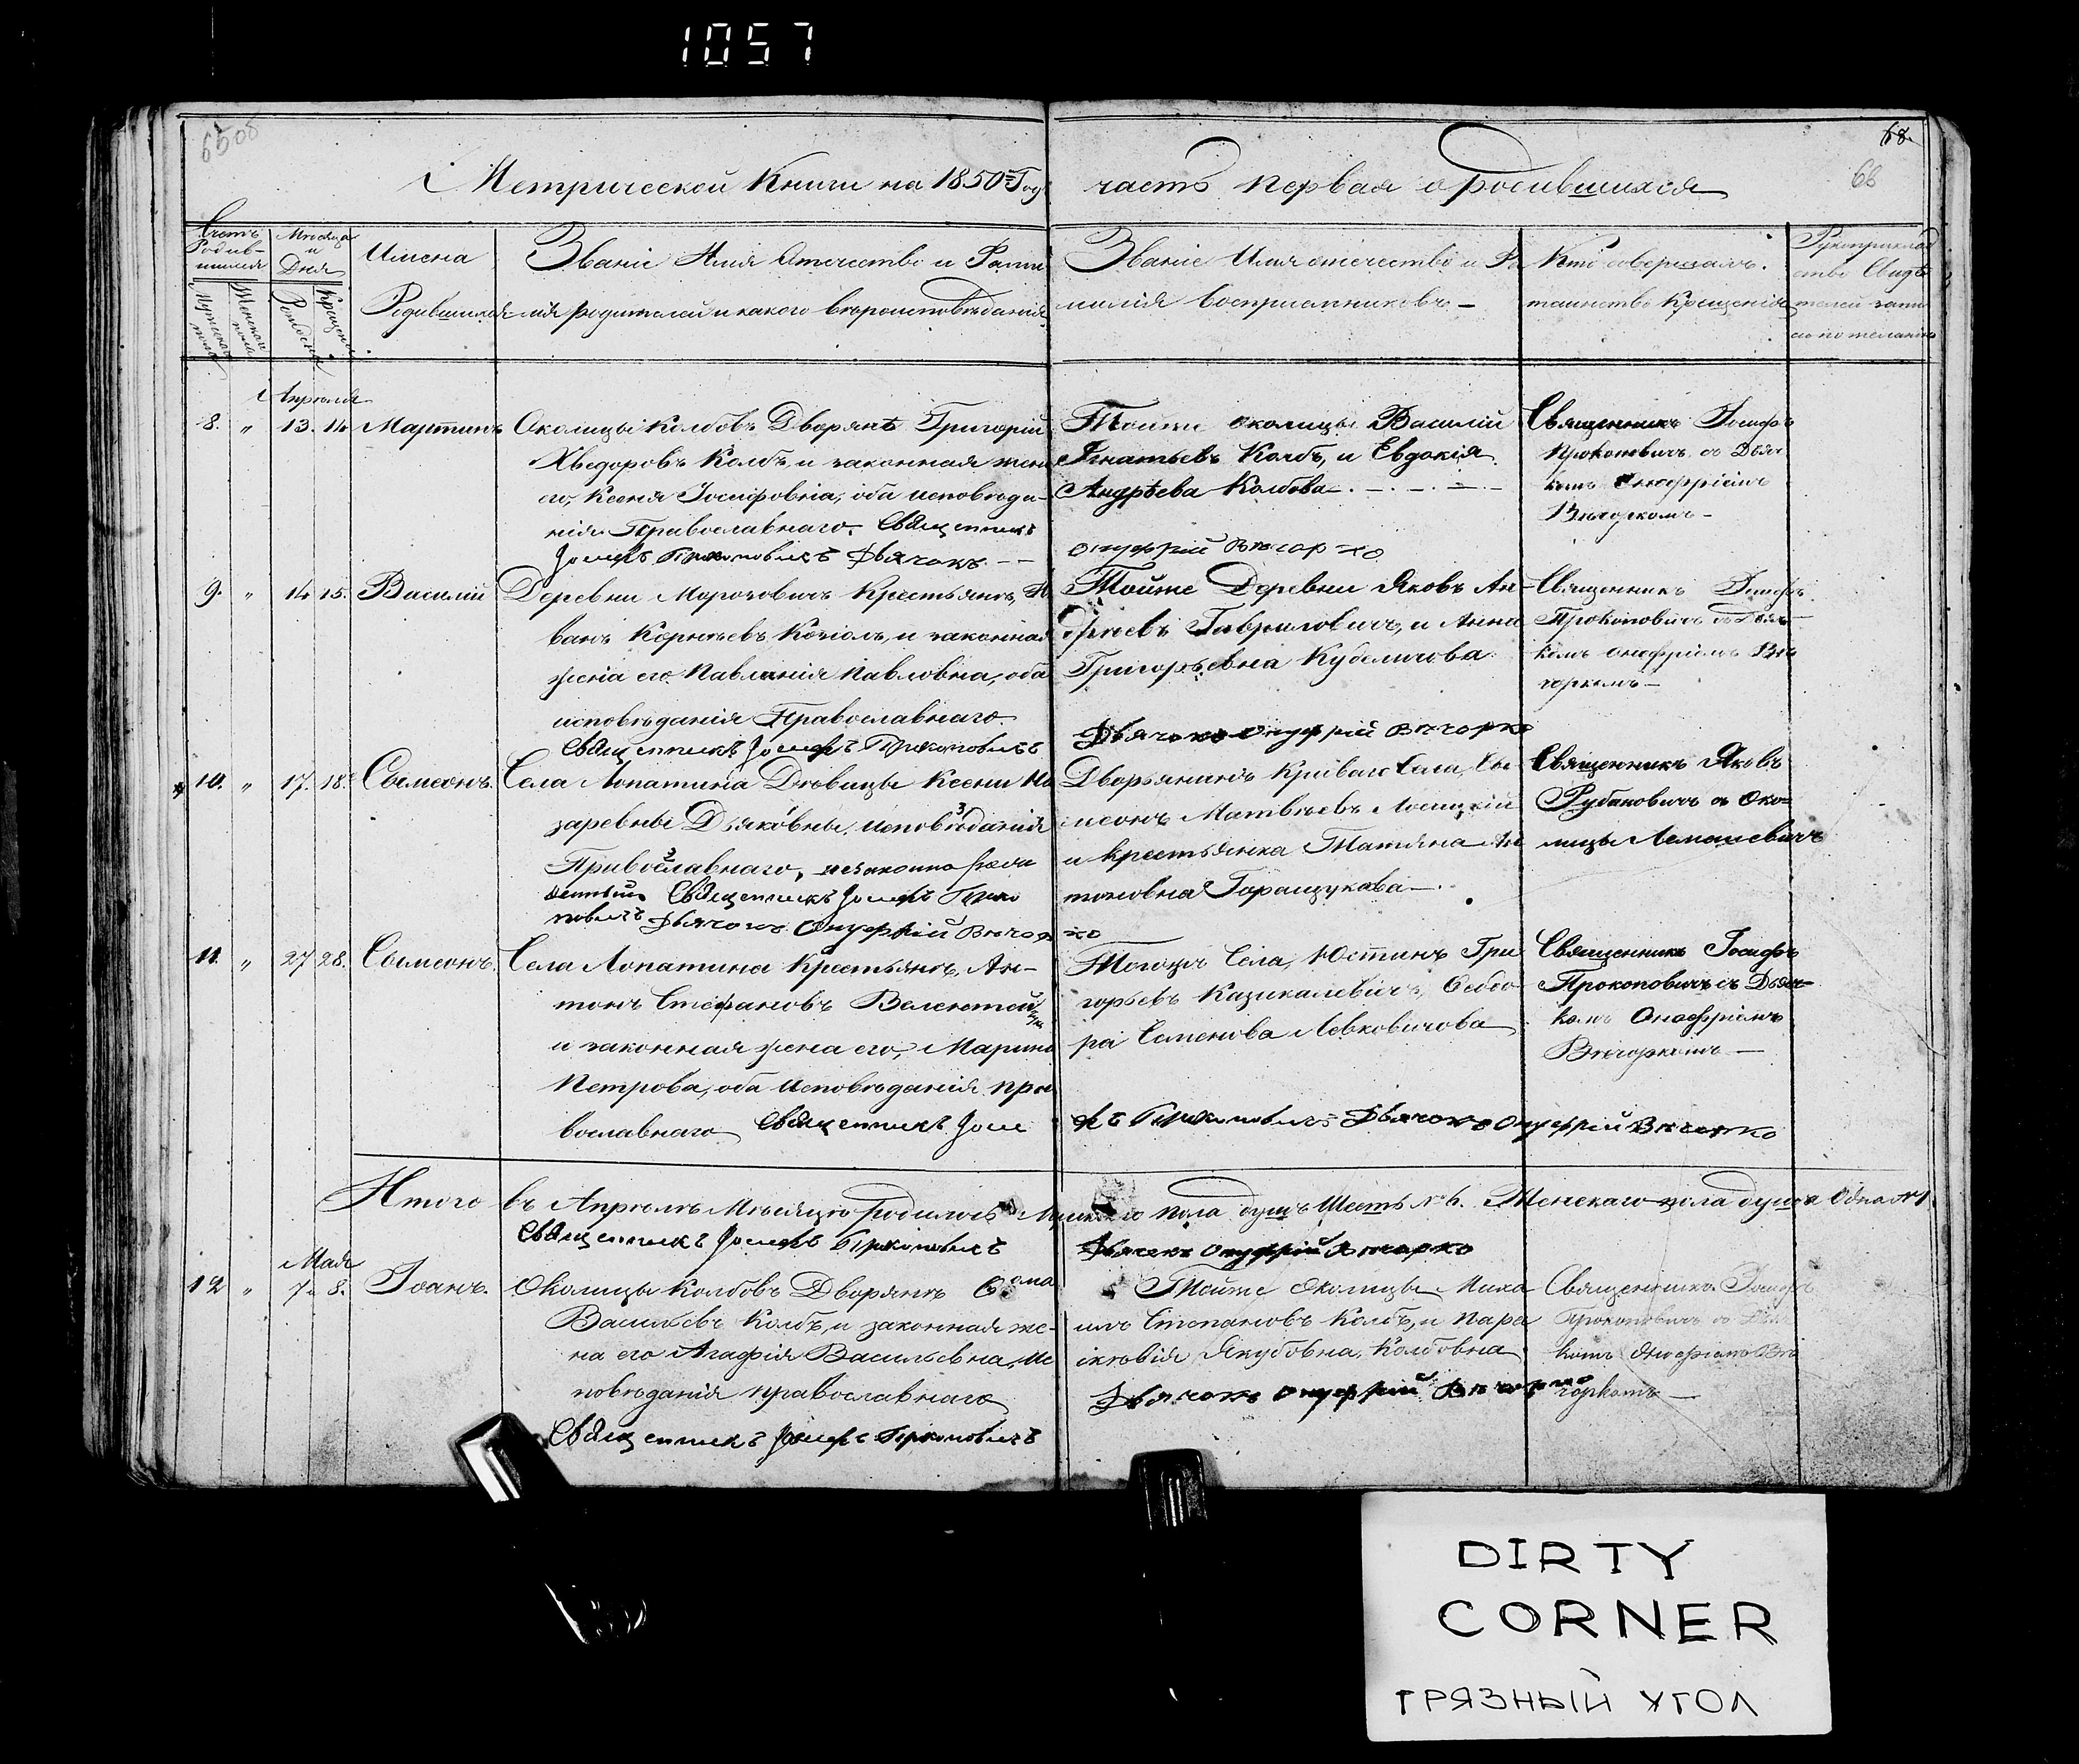 1057
6508
68.
68
Метрической Книги на 1850 Год часть первая о родившихся
Счетъ Родившихся
Мужеска пола
Женска пола
Месяца и Дня
Рожденія
Крещенія
Имена
Родившихся
Званіе Имя Отчество и Фами
лія родителей и какого вероисповѣданія
Званіе Имя отчество и Фа
милія Воспріемниковъ
Кто совершалъ
таинство Крещенія
Рукоприклад
ство Свидѣ
телей запи
си по желанію
Апреля
8. " 13. 14 Мартинъ
Околицы Колбовъ Дворянъ Григорій
Хведоровъ Колбъ, и законная жена
его, Ксеня Іосифовна, оба исповѣда-
нія Православнаго. Священникъ
Іосифъ Прокоповичъ Дьячокъ
Тойже околицы Василій
Игнатьевъ Колбъ, и Евдокія
Андрѣева Колбова
Онуфрій Вѣчорко
Священникъ Іосифъ
Прокоповичъ съ Дьяч
комъ Онофріемъ
Вѣчоркомъ
9. " 14 15. Василій
Деревни Морочовичъ Крестьянъ, И
ванъ Корнѣевъ Козіолъ, и законная
жена его Павланія Павловна, оба
исповѣданія Православнаго
Священникъ Іосифъ Прокоповичъ
Тойже Деревни Яковъ Ан
дрѣевъ Гавриловичъ, и Анна
Григорьевна Куделичова
Дьячокъ Онуфрій Вѣчорко
Священникъ Іосифъ
Прокоповичъ съ Дьяч
комъ Онофріемъ Вѣ
чоркомъ
10. " 17. 18. Сѵмеонъ.
Села Лопатина Дѣвицы Ксени На
заревны Дьяковны, исповѣданія
Православнаго, незаконно рож
денный Священникъ Іосифъ Проко
повичъ Дьячокъ Онуфрій Вѣчор
ко
Дворянинъ Кривого Села, Си
меонъ Матвѣевъ Лосицкій
и крестьянка Татьяна Ан
тоновна Горащукова
Священникъ Яковъ
Рубановичъ съ Око
лицы Лемешевичъ
11. " 27 28. Сѵмеонъ.
Села Лопатина Крестьянъ, Ан-
тонъ Стефановъ
и законная жена его, Марина
Петрова, оба исповѣданія пра
вославнаго Священникъ Іоси
фъ Прокоповичъ Дьячокъ Онуфрій Вѣчорко
Тогожъ Села, Юстинъ Гри
горьевъ Казикалевичъ, Ѳеодо
ра Семенова Левковичова
Священникъ Іосифъ
Прокоповичъ съ Дьяч
комъ Онофріемъ
Вѣчоркомъ
Итого въ Апрѣлѣ Мѣсяцѣ родилось Мужскаго пола душъ Шесть № 6. Женскаго пола душа Одна № 1
Священникъ Іосифъ Прокоповичъ Дьячокъ Онуфрій Вѣчорко
Мая
12 " 7. 8. Іоанъ.
Околицы Колбовъ Дворянъ Ѳома
Васильевъ Колбъ, и законная же-
на его Агафія Васильевна, ис
повѣданія православнаго
Священникъ Іосифъ Прокоповичъ
Тойже Околицы Миха
илъ Степановъ Колбъ, и Пара
сковія Якубовна, Колбовна
Дьячокъ Онуфрій Вѣчорко
Священникъ Іосифъ
Прокоповичъ съ Дьяч
комъ Онофріемъ Вѣ
чоркомъ
DIRTY
CORNER
ГРЯЗНЫЙ УГОЛ